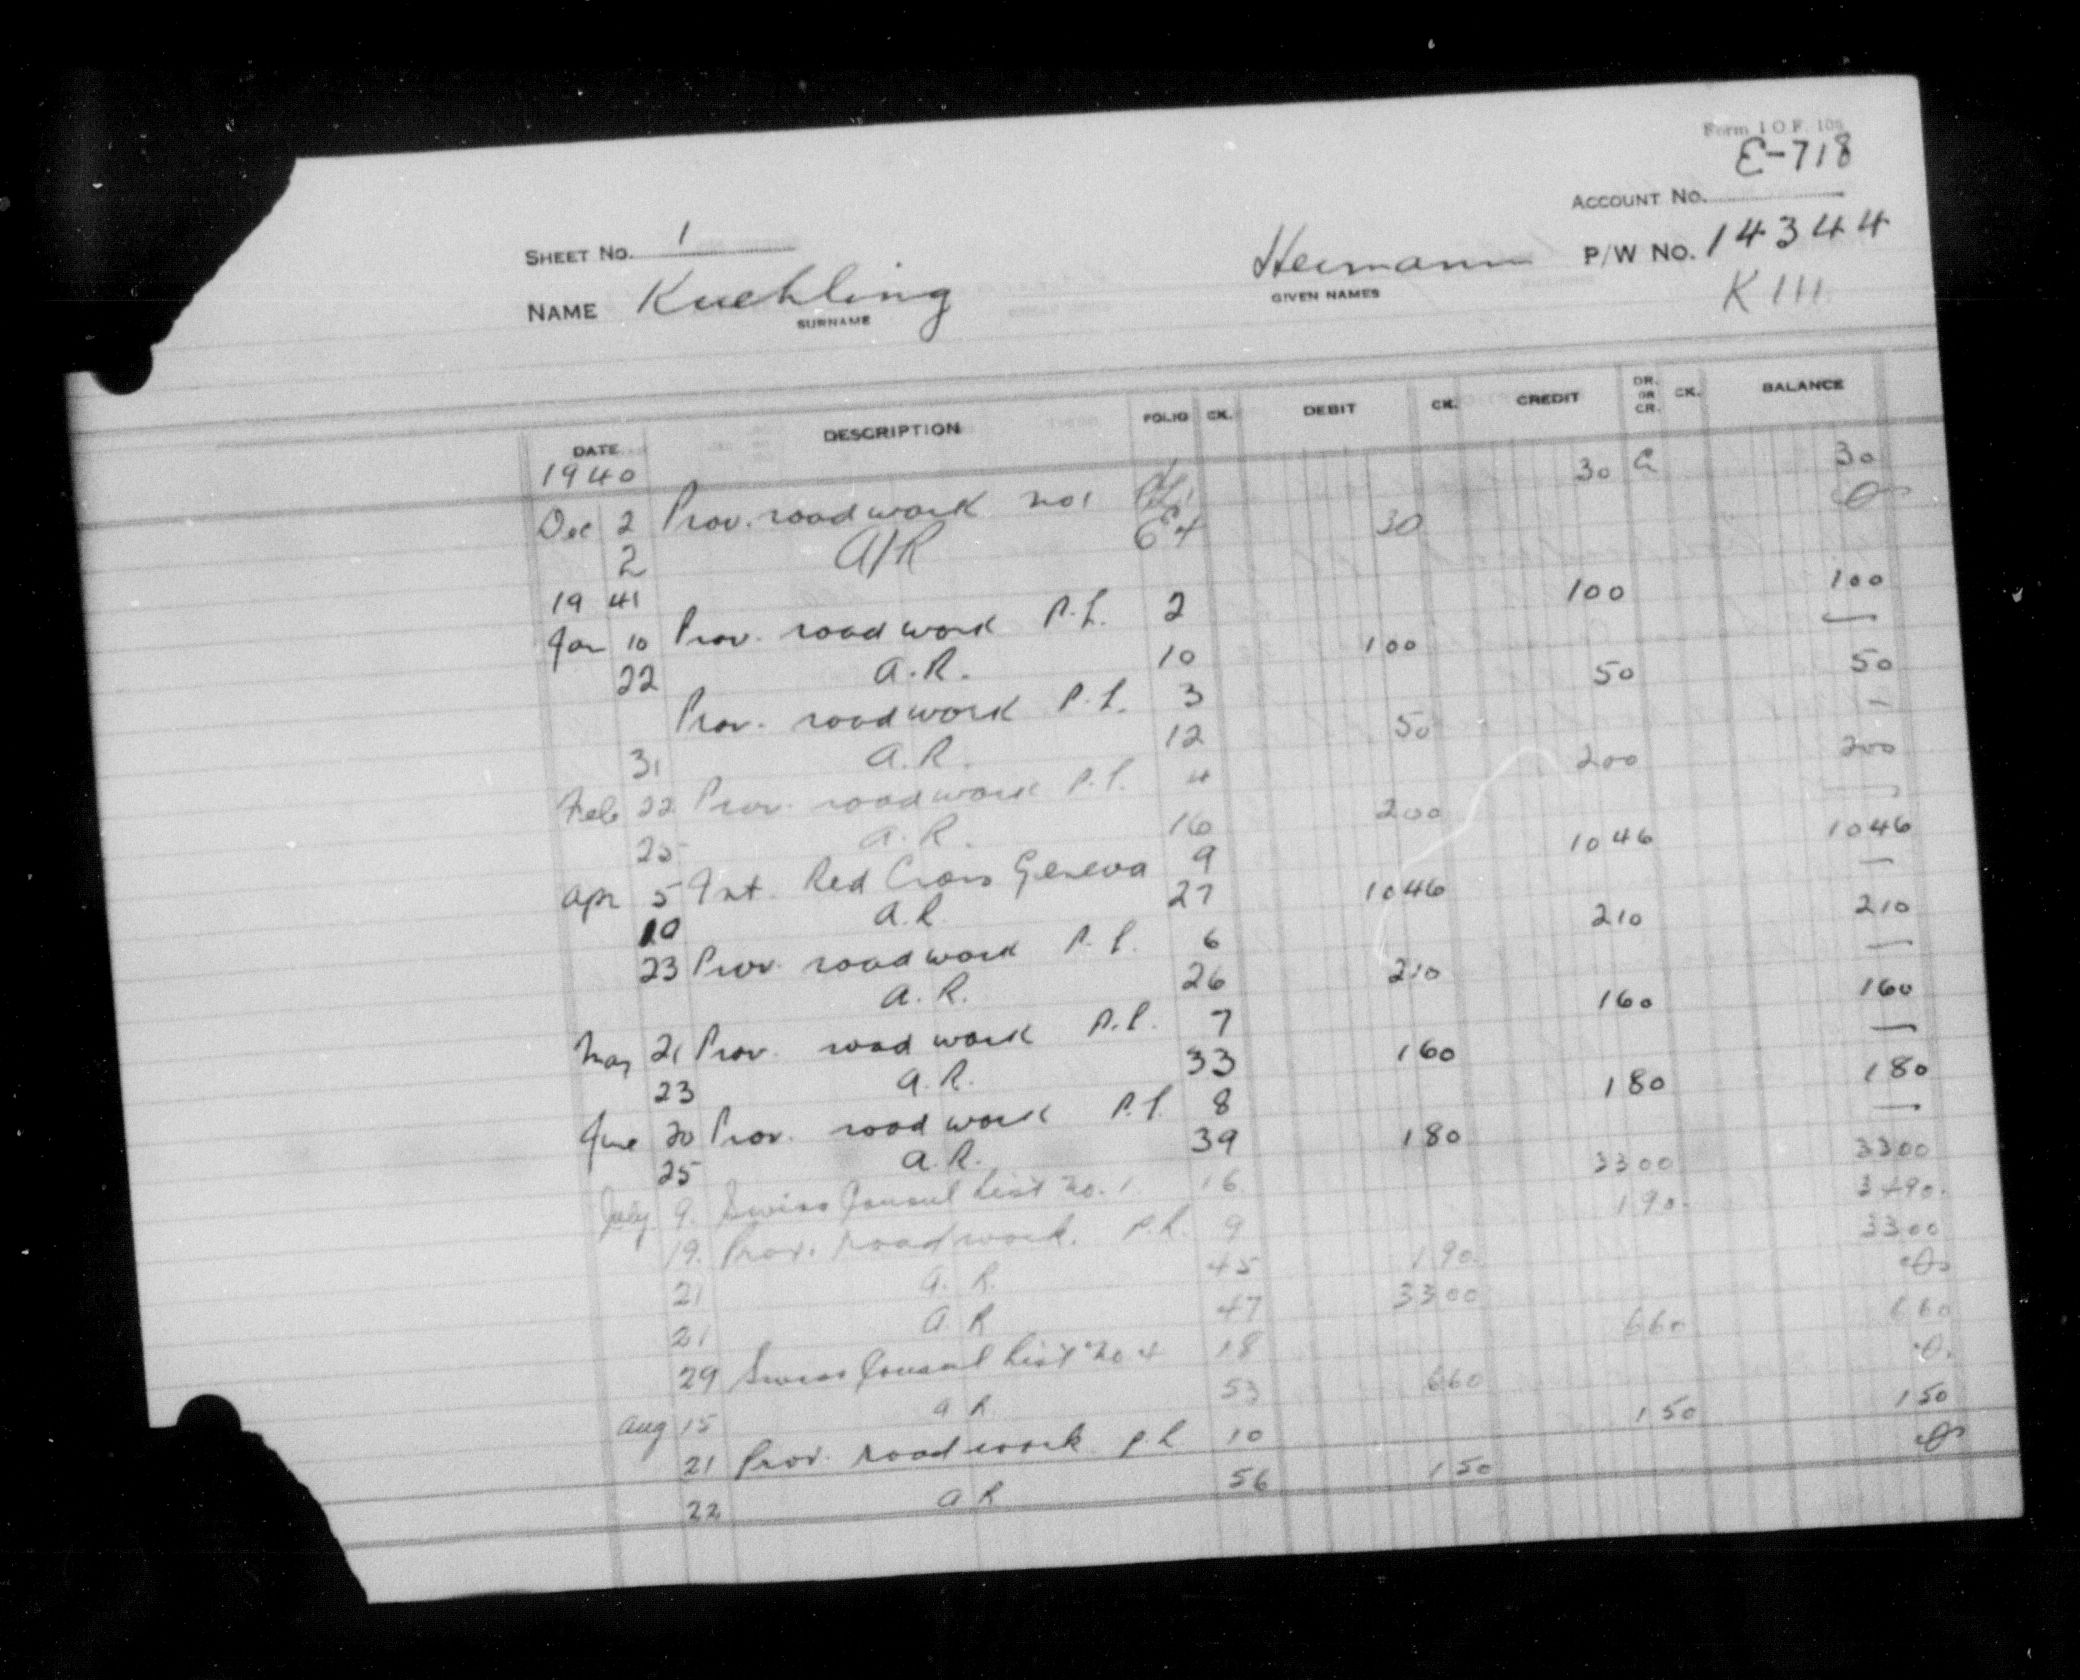 Form I O.F. 105
E-718
ACCOUNT No.
SHEET No. 1
P/W No. 14344
NAME Kuehling Hermann
SURNAME GIVEN NAMES
K III
DATE DESCRIPTION FOLIO CK. DEBIT CK. CREDIT DR. OR CR. CK. BALANCE
1940
Dec 2 Prov. road work no 1 30 30
2 A/R 30
1941
Jan 10 Prov. road work P.L. 2 100 100
22 A.R. 10 100 —
Prov. road work P.L. 3 50 50
31 A.R. 12 50 —
Feb 22 Prov. road work P.L. 4 200 200
25 A.R. 16 200 —
Apr 5 Int. Red Cross Geneva 9 1046 1046
10 A.R. 27 1046 —
23 Prov. road work P.L. 6 210 210
A.R. 26 210 —
May 21 Prov. road work P.L. 7 160 160
23 A.R. 33 160 —
June 20 Prov. road work P.L. 8 180 180
25 A.R. 39 180 —
July 9. Swiss Consul List No. 1. 16 3300 3300
19. Prov. road work. P.L. 9 190. 3490.
21 A.R. 45 190. 3300
21 A R 47 3300 0
29 Swiss Consul List No 4 18 660 660
Aug 15 A R 53 660 0
21 Prov. road work P L 10 150 150
22 A R 56 150 0